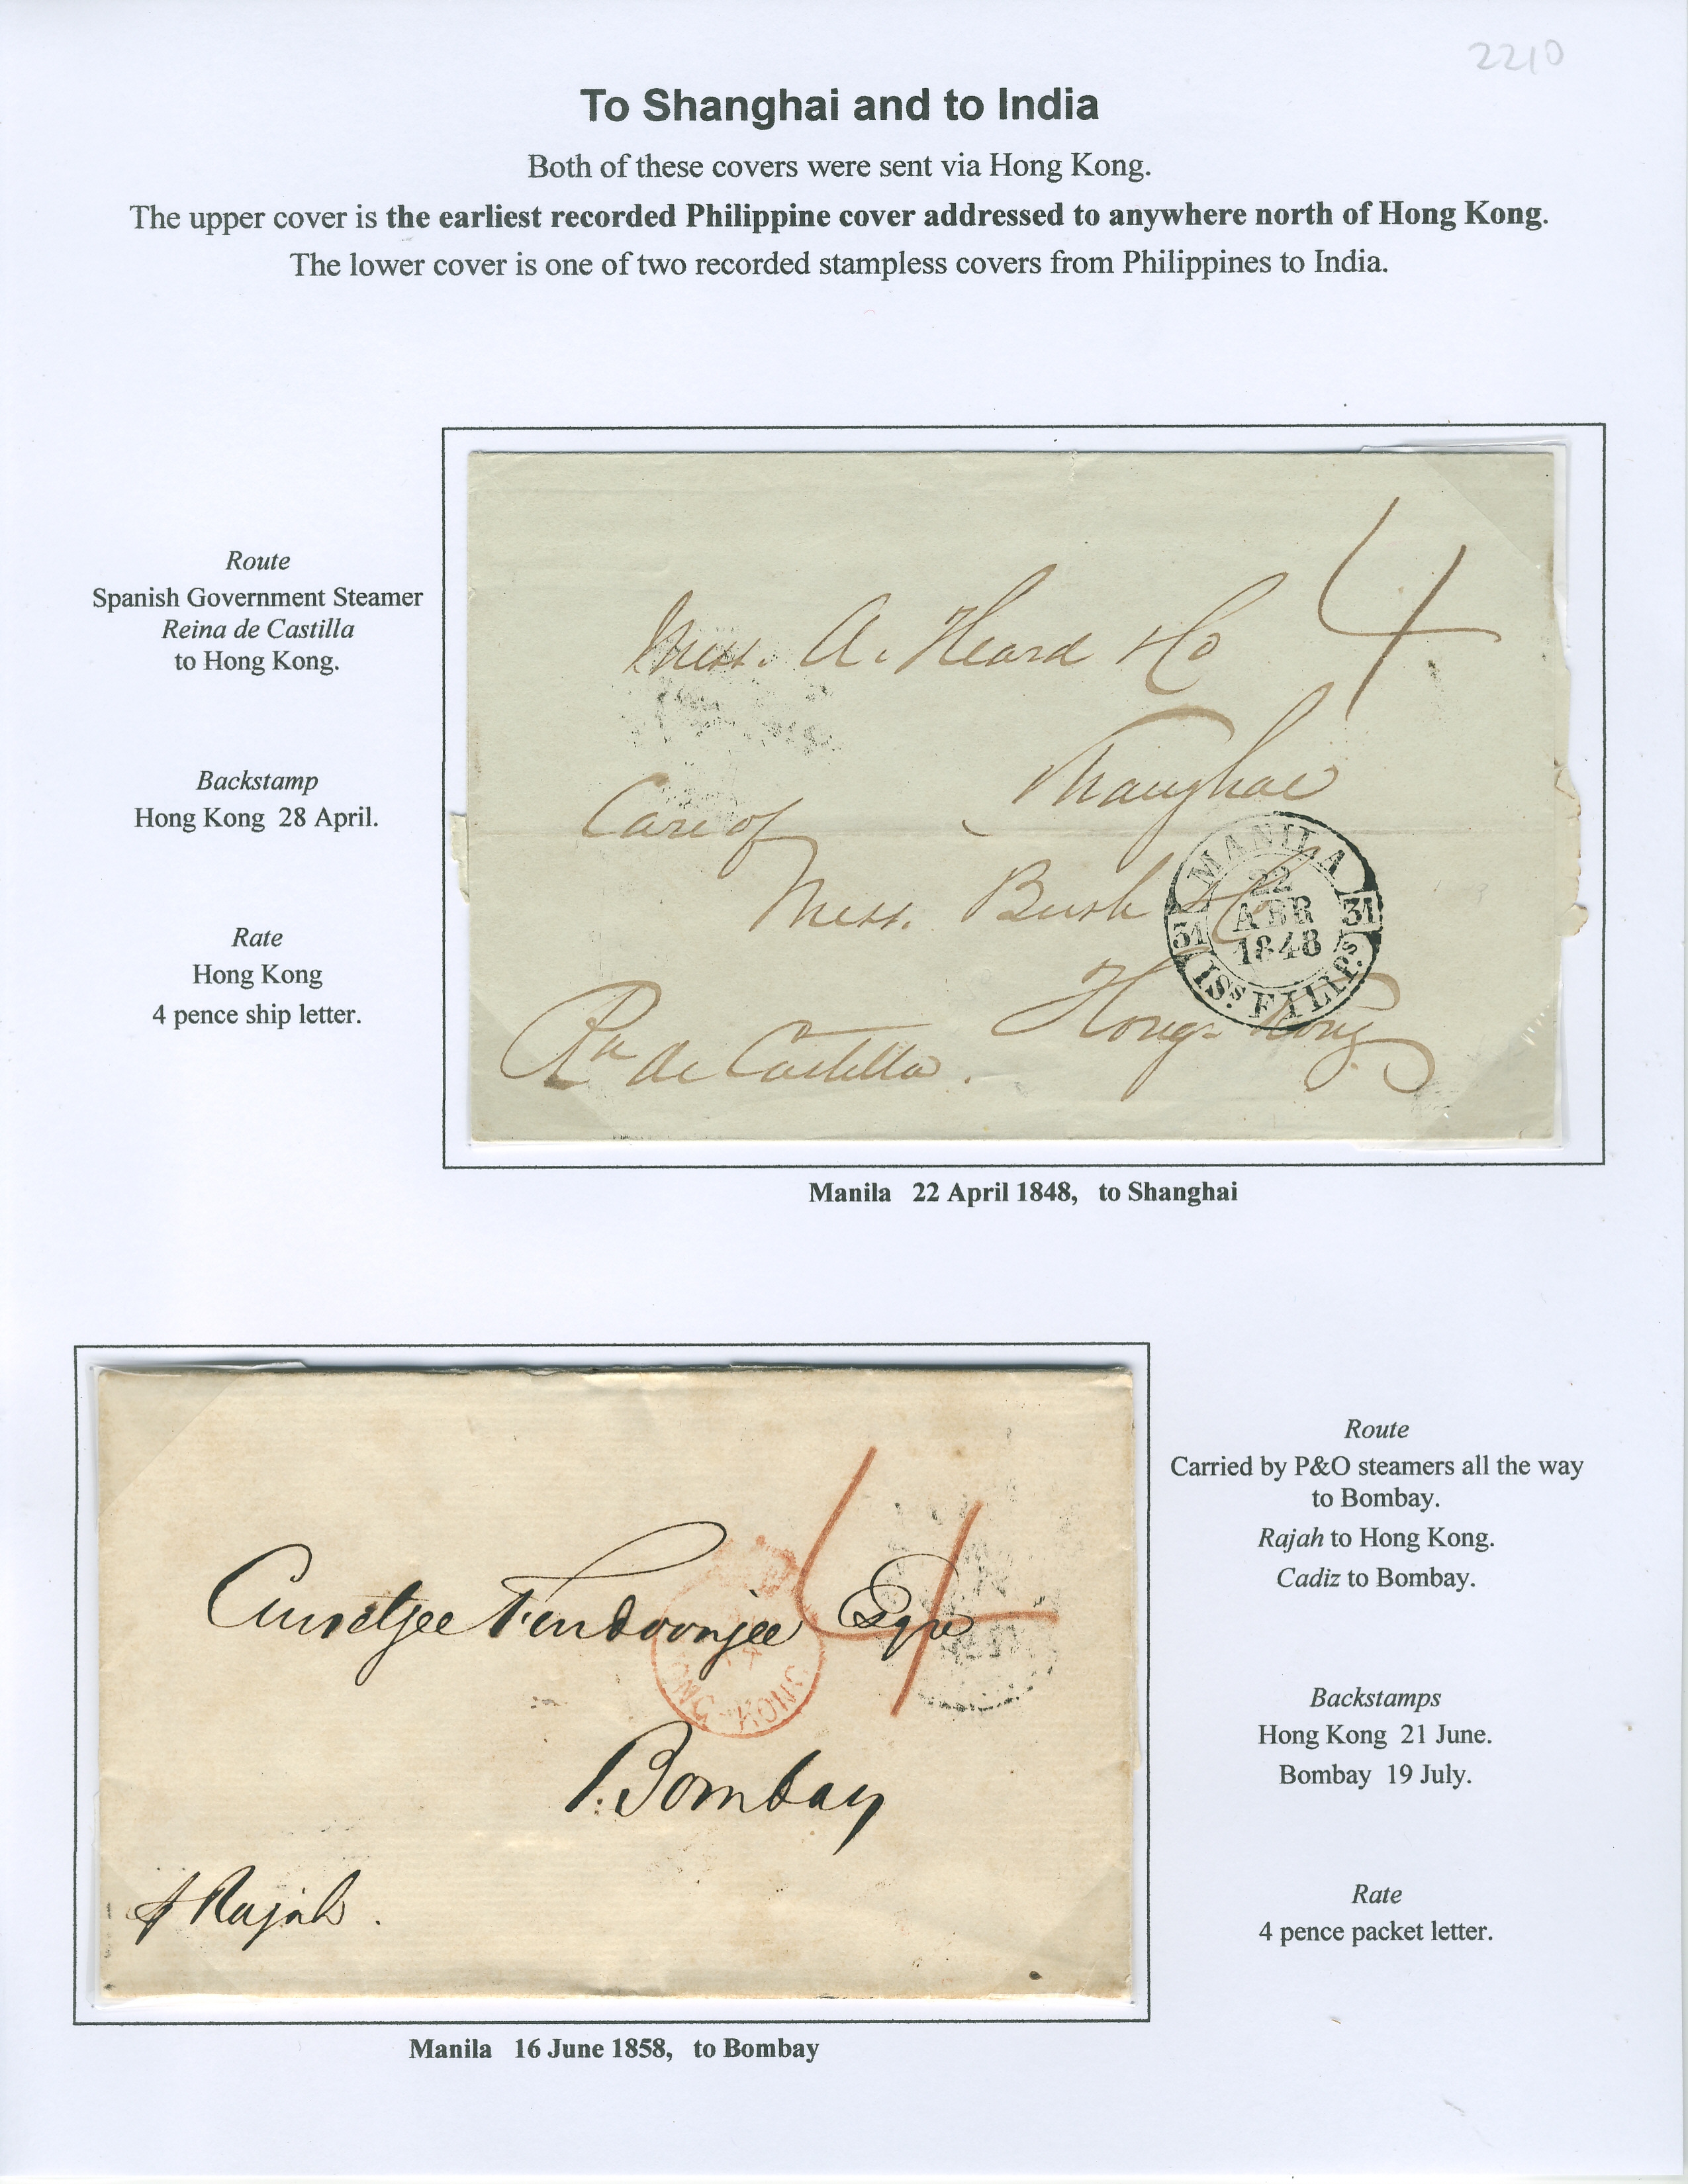 2210
To Shanghai and to India
Both of these covers were sent via Hong Kong.
The upper cover is the earliest recorded Philippine cover addressed to anywhere north of Hong Kong.
The lower cover is one of two recorded stampless covers from Philippines to India.
Route
Spanish Government Steamer
Reina de Castilla
to Hong Kong.
Backstamp
Hong Kong 28 April.
Rate
Hong Kong
4 pence ship letter.
4
Mess. A. Heard & Co
Shanghae
Care of
Mess. Bush & Co
Hong-Kong
Rna de Castilla.
MANILA
22
ABR
1848
31 31
ISs. FILIP.s
Manila 22 April 1848, to Shanghai
4
Cursetjee Esqre
Bombay
Rajah.
HONG-KONG
Manila 16 June 1858, to Bombay
Route
Carried by P&O steamers all the way
to Bombay.
Rajah to Hong Kong.
Cadiz to Bombay.
Backstamps
Hong Kong 21 June.
Bombay 19 July.
Rate
4 pence packet letter.